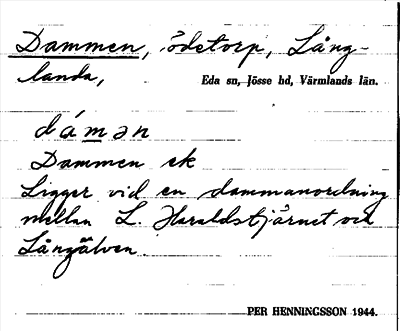 Dammen, ödetorp, Lång-
landa,
Eda sn, Jösse hd, Värmlands län.
dámən
Dammen ek
Ligger vid en dammanordning
mellan L. Haraldstjärnet och
Långälven.
PER HENNINGSSON 1944.